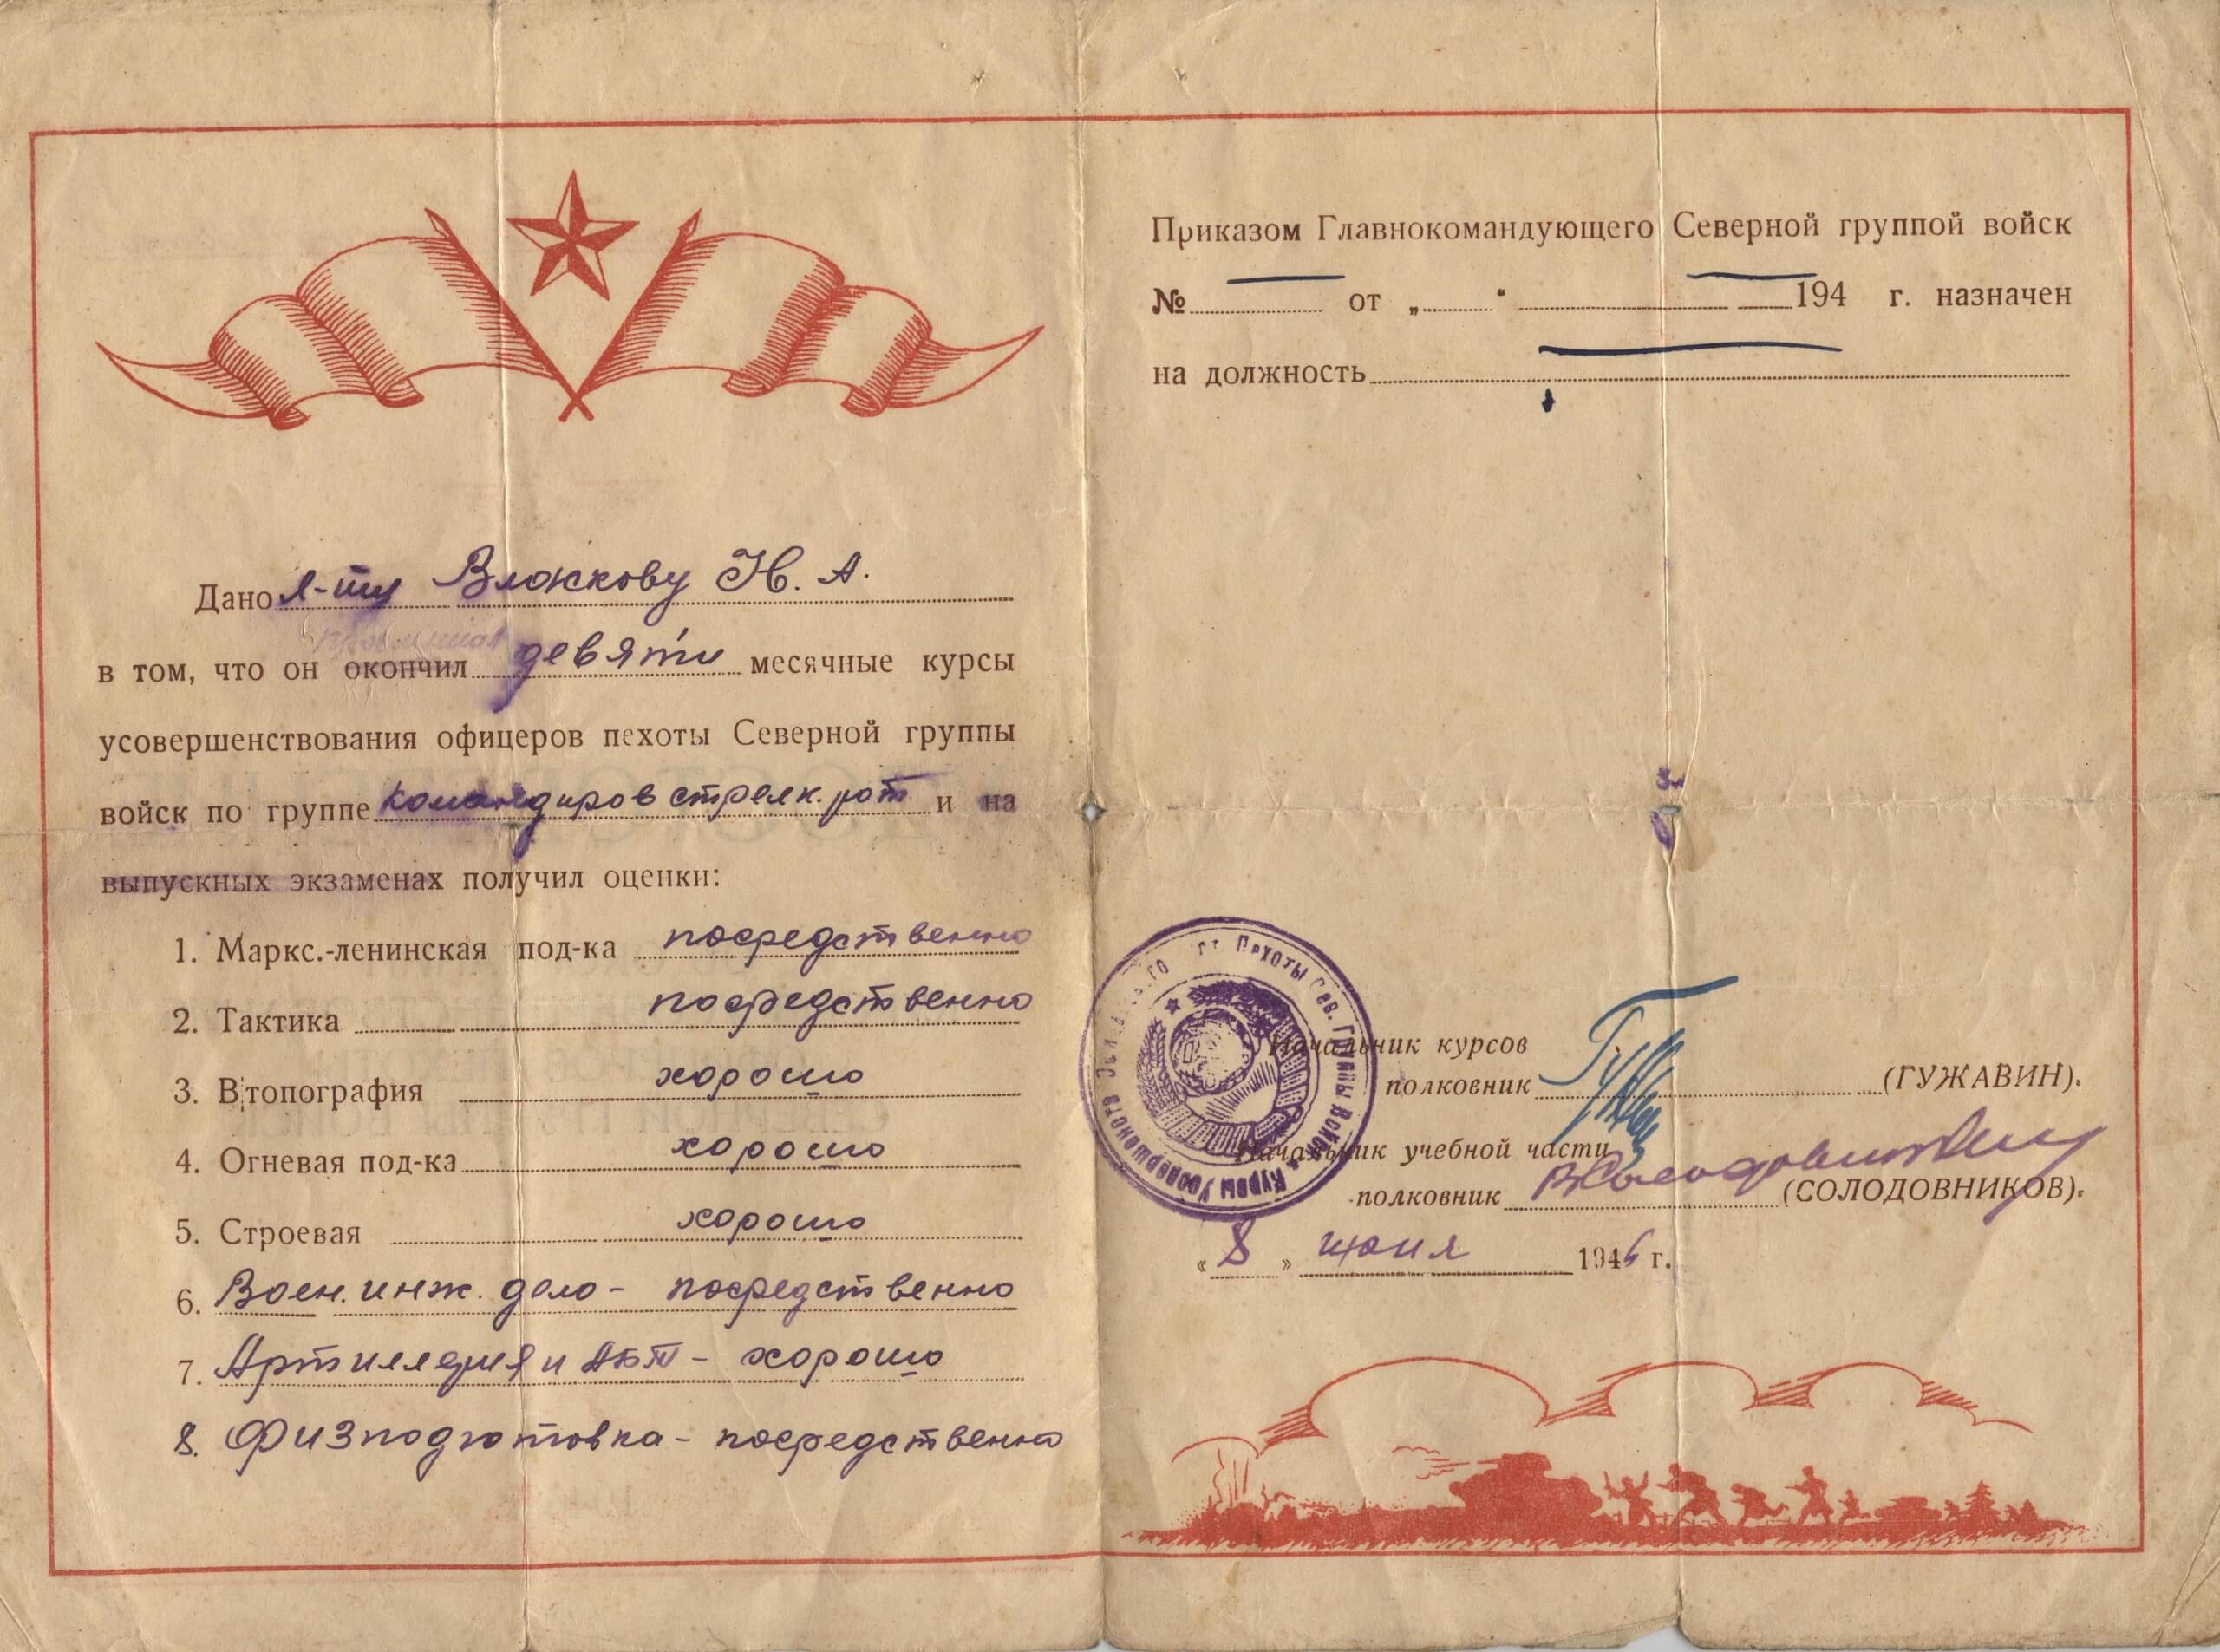 Дано л-ту Влажкову Н. А.
в том, что он окончил девяти месячные курсы
усовершенствования офицеров пехоты Северной группы
войск по группе командиров стрелк. рот и на
выпускных экзаменах получил оценки:
1. Маркс.-ленинская под-ка посредственно
2. Тактика посредственно
3. В/топография хорошо
4. Огневая под-ка хорошо
5. Строевая хорошо
6. Воен. инж. дело - посредственно
7. Артиллерия и АБТ - хорошо
8. Физподготовка - посредственно
Приказом Главнокомандующего Северной группой войск
№ от „ “ 194 г. назначен
на должность
Пехоты Сев. Группы Войск Курсы Усовершенств
Начальник курсов
полковник (ГУЖАВИН).
Начальник учебной части
полковник (СОЛОДОВНИКОВ).
« 8 » июня 1946 г.